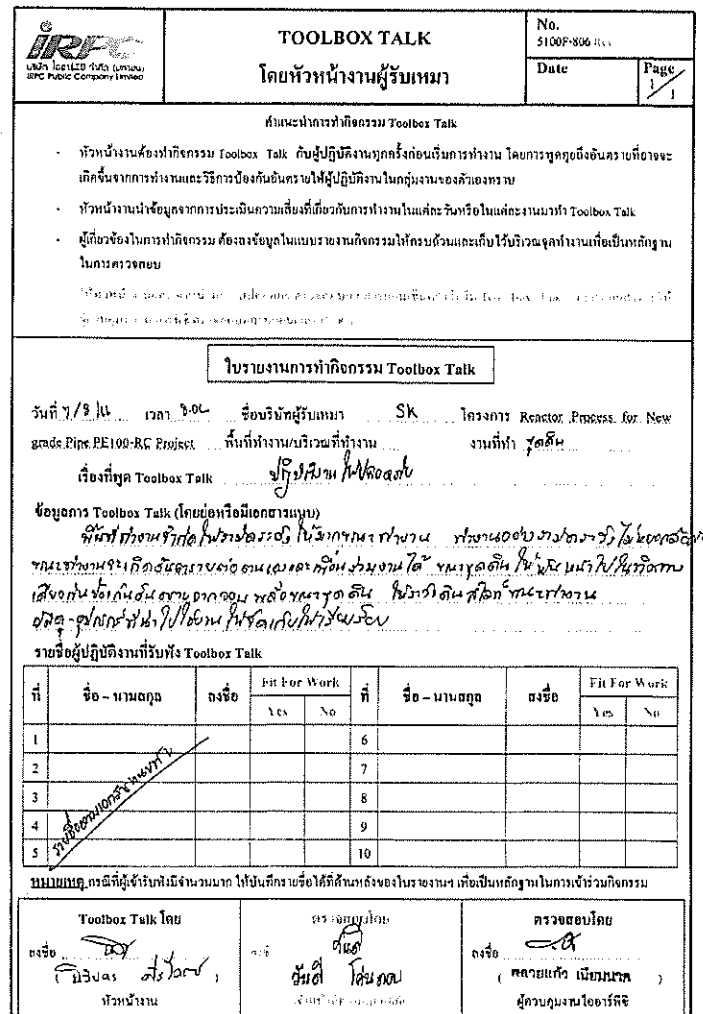 IRPC
บริษัท ไออาร์พีซี จำกัด (มหาชน)
IRPC Public Company Limited
TOOLBOX TALK
โดยหัวหน้างานผู้รับเหมา
No.
5100F-806
Date
Page
1/1
คำแนะนำการทำกิจกรรม Toolbox Talk
- หัวหน้างานต้องทำกิจกรรม Toolbox Talk กับผู้ปฏิบัติงานทุกครั้งก่อนเริ่มการทำงาน โดยการพูดคุยถึงอันตรายที่อาจจะ
เกิดขึ้นจากการทำงานและวิธีการป้องกันอันตรายให้ผู้ปฏิบัติงานในกลุ่มงานของตัวเองทราบ
- หัวหน้างานนำข้อมูลจากการประเมินความเสี่ยงที่เกี่ยวกับการทำงานในแต่ละวันหรือในแต่ละงานมาทำ Toolbox Talk
- ผู้เกี่ยวข้องในการทำกิจกรรม ต้องลงข้อมูลในแบบรายงานกิจกรรมให้ครบถ้วนและเก็บไว้บริเวณจุดทำงานเพื่อเป็นหลักฐาน
ในการตรวจสอบ
ใบรายงานการทำกิจกรรม Toolbox Talk
วันที่ เวลา ชื่อบริษัทผู้รับเหมา SK โครงการ Reactor Process for New
grade Pipe PE100-RC Project พื้นที่ทำงาน/บริเวณที่ทำงาน งานที่ทำ ขุดดิน
เรื่องที่พูด Toolbox Talk ปฏิบัติงานให้ปลอดภัย
ข้อมูลการ Toolbox Talk (โดยย่อหรือมีเอกสารแนบ)
พื้นที่ทำงานจำกัดให้ระมัดระวังให้มากขณะทำงาน ทำงานอย่างระมัดระวัง ไม่หยอกล้อ
ขณะทำงานจะเกิดอันตรายต่อตนเองและเพื่อนร่วมงานได้ ขณะขุดดิน ให้หันหน้าไปในทิศทาง
เดียวกันป้องกันอันตรายจากจอบ พลั่วขณะขุดดิน ให้ระวังดินสไลท์ขณะทำงาน
วัสดุ-อุปกรณ์ที่นำไปใช้งาน ให้จัดเก็บให้เรียบร้อย
รายชื่อผู้ปฏิบัติงานที่รับฟัง Toolbox Talk
ที่ ชื่อ – นามสกุล ลงชื่อ Fit For Work ที่ ชื่อ – นามสกุล ลงชื่อ Fit For Work
Yes No Yes No
1 6
2 7
3 8
4 9
5 10
รายชื่อตามเอกสารแนบ
หมายเหตุ กรณีที่ผู้เข้ารับฟังมีจำนวนมาก ให้บันทึกรายชื่อได้ที่ด้านหลังของใบรายงานฯ เพื่อเป็นหลักฐานในการเข้าร่วมกิจกรรม
Toolbox Talk โดย ตรวจสอบโดย ตรวจสอบโดย
ลงชื่อ ลงชื่อ ลงชื่อ
วันดี
( พลายแก้ว เนียมนาค )
หัวหน้างาน ผู้ควบคุมงานไออาร์พีซี